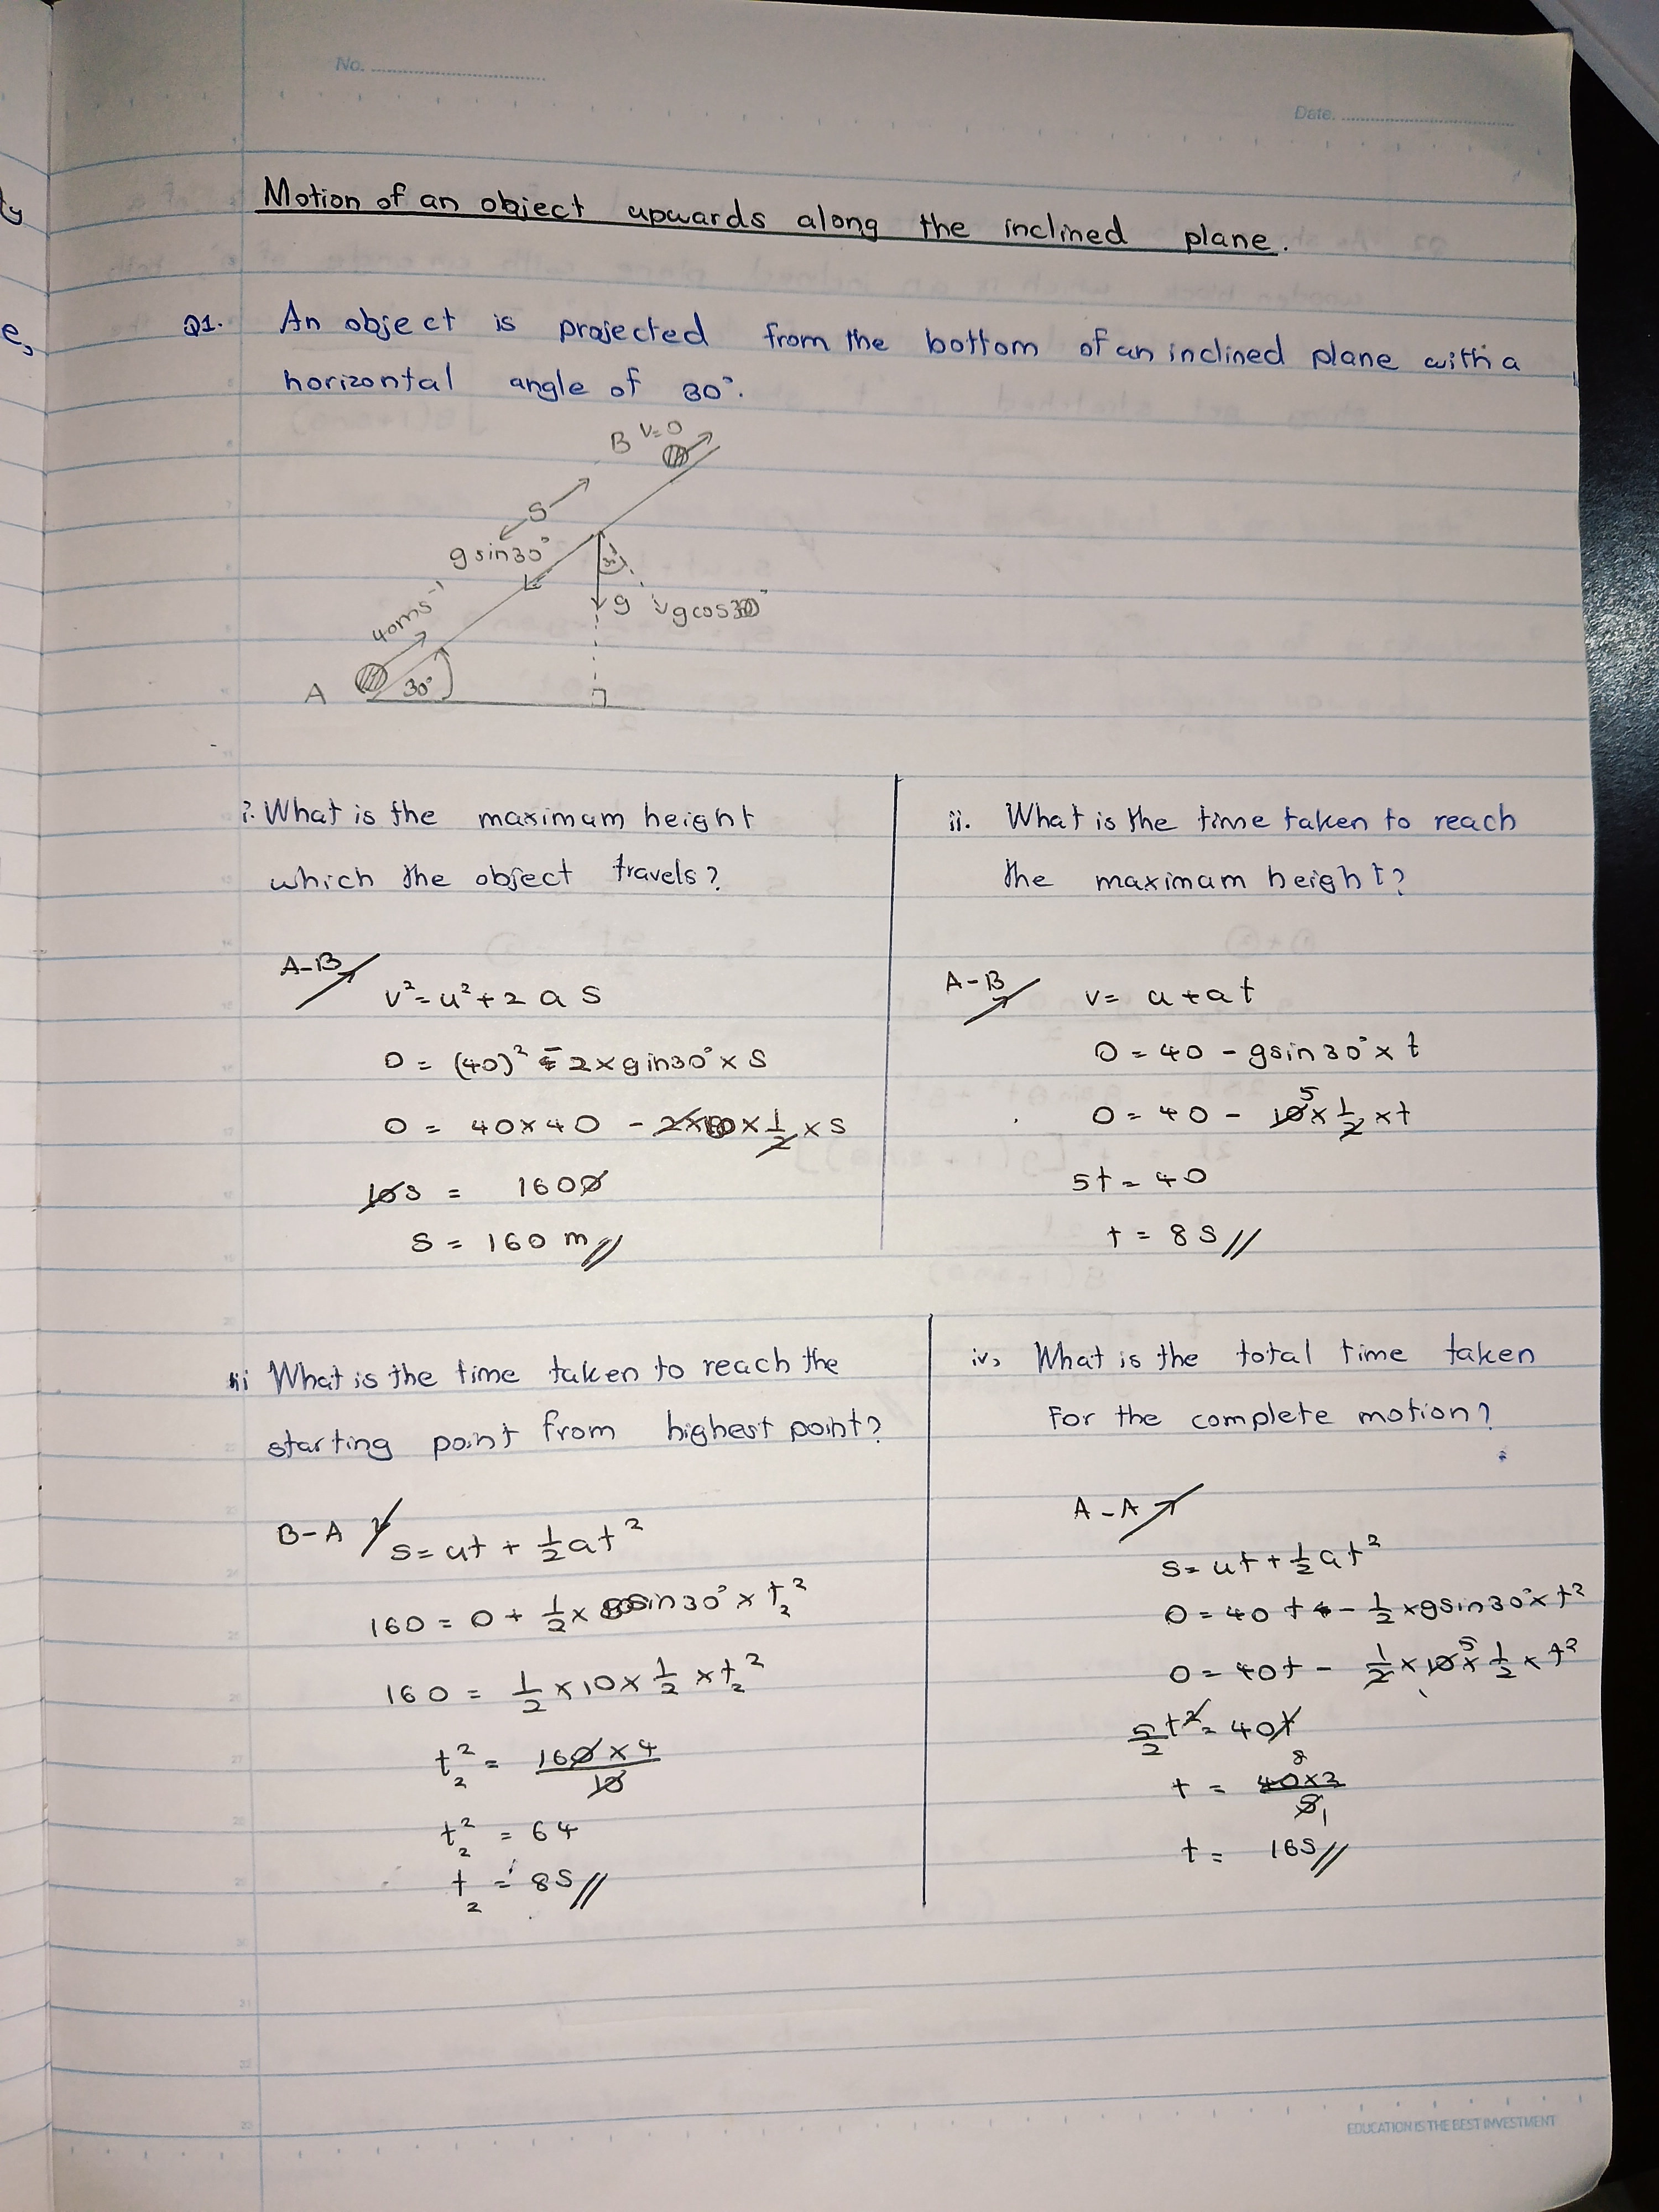 No.
Date.
Motion of an object upwards along the inclined plane.
Q1. An object is projected from the bottom of an inclined plane with a
horizontal angle of 30°.
B V=0
S
g sin30°
40ms⁻¹
30°
g
gcos30°
A
30°
i. What is the maximum height
which the object travels?
A-B
v² = u² + 2 a S
0 = (40)² - 2 × gin30° × S
0 = 40×40 - 2×10×1/2 × s
10s = 1600
S = 160 m//
ii. What is the time taken to reach
the maximam height?
A-B
v = u + at
0 = 40 - gsin30° × t
0 = 40 - 10 5 × 1/2 × t
5t = 40
t = 8s//
iii What is the time taken to reach the
starting point from highest point?
B-A
s = ut + 1/2 at²
160 = 0 + 1/2 × sin30° × t₂²
160 = 1/2 × 10 × 1/2 × t₂²
t₂² = 160 × 4 / 10
t₂² = 64
t₂ = 8s//
iv, What is the total time taken
for the complete motion?
A-A
s = ut + 1/2 at²
0 = 40t - 1/2 × gsin30° × t²
0 = 40t - 1/2 × 10 5 × 1/2 × t²
5/2 t² = 40t
t = 40 8 × 2 / 5 1
t = 16s//
EDUCATION IS THE BEST INVESTMENT